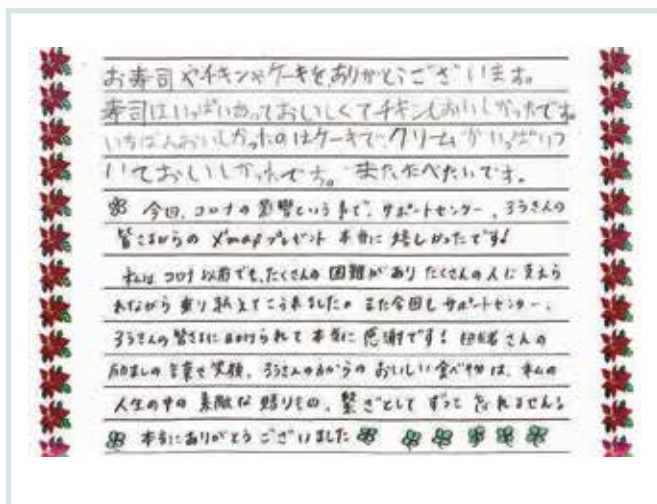 お寿司やチキンやケーキをありがとうございます。
寿司はいっぱいあっておいしくてチキンもおいしかったです。
いちばんおいしかったのはケーキで、クリームがいっぱいつ
いておいしかったです。またたべたいです。
今回、コロナの影響という事で、サポートセンター、ろうさんの
皆さまからのX'masプレゼント本当に嬉しかったです!
私はコロナ以前でも、たくさんの困難があり たくさんの人に支えら
れながら乗り越えてこられました。また今回もサポートセンター、
ろうさんの皆さまに助けられて本当に感謝です! 担当者さんの
励ましの言葉や笑顔、ろうさんの方からのおいしい食べ物は、私の
人生の中の素敵な贈りもの、繋ぎとしてずっと忘れません!
本当にありがとうございました